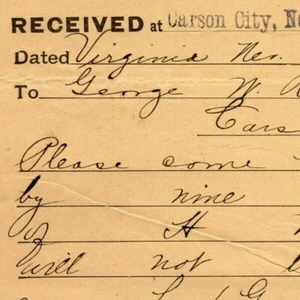 RECEIVED at Carson City, Ne
Dated Virginia Nev.
To George W.
Cars
Please come
by nine
of H
will not